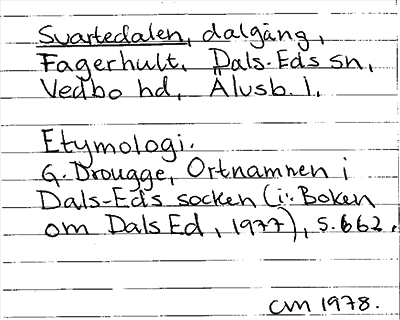 Svartedalen, dalgång,
Fagerhult, Dals-Eds sn,
Vedbo hd, Älvsb. l.
Etymologi.
G. Drougge, Ortnamnen i
Dals-Eds socken (i: Boken
om Dals Ed, 1977), s. 662.
CM 1978.